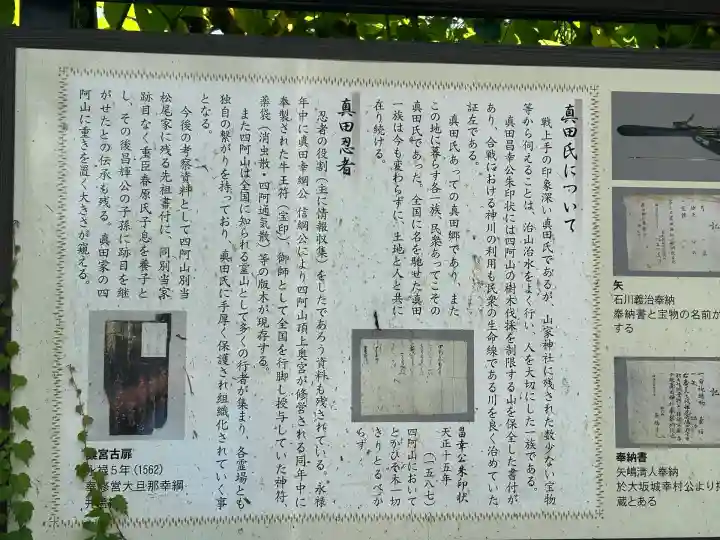 真田氏について
戦上手の印象深い真田氏であるが、山家神社に残された数少ない宝物
等から伺えることは、治山治水をよく行い、人を大切にした一族である。
真田昌幸公朱印状には四阿山の樹木伐採を制限する山を保全した書付が
あり、合戦における神川の利用も民衆の生命線である川を良く治めていた
証左である。
真田氏あっての真田郷であり、また
この地に暮らす各一族、民衆あってこその
真田氏であった。全国に名を馳せた真田
一族は今も変わらずに、土地と人と共に
在り続ける。
昌幸公朱印状
天正十五年
(一五八七)
四阿山において
とがひの木一切
きりとるべか
らず
真田忍者
忍者の役割(主に情報収集)をしたであろう資料も残されている。永禄
年中に真田幸綱公 信綱公により四阿山頂上奥宮が修営される同年中に
奉製された牛王符(宝印)御師として全国を行脚し授与していた神符、
薬袋(消毒散・四阿通気散)等の版木が現存する。
また四阿山は全国に知られる霊山として多くの行者が集まり、各霊場とも
独自の繋がりを持っており、真田氏に手厚く保護され組織化されていく事
となる。
今後の考察資料として四阿山別当
松尾家に残る先祖書付に、同別当家
跡目なく重臣春原氏子息を養子と
し、その後昌輝公の子孫に跡目を継
がせたとの伝承も残る。真田家の四
阿山に重きを置く大きさが窺える。
奥宮古扉
永禄5年(1562)
奉修営大旦那幸綱
矢
石川義治奉納
奉納書と宝物の名前が
する
奉納書
矢嶋清人奉納
於大坂城幸村公より拝
蔵とある